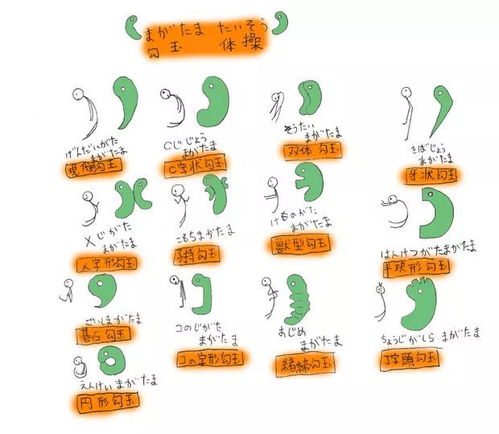 まがたま たいそう
勾玉 体操
げんだいがた
まがたま
現代勾玉
Cじじょう
まがたま
C字状勾玉
そうたい
まがたま
双体勾玉
きばじょう
まがたま
牙状勾玉
Xじがた
まがたま
X字形勾玉
こもちまがたま
子持勾玉
けものがた
まがたま
獣型勾玉
はんけつがたまがたま
半玦形勾玉
ごいしまがたま
碁石勾玉
コのじがた
まがたま
コの字形勾玉
おじめ
まがたま
緒締勾玉
ちょうじがしら まがたま
丁字頭勾玉
えんけいまがたま
円形勾玉